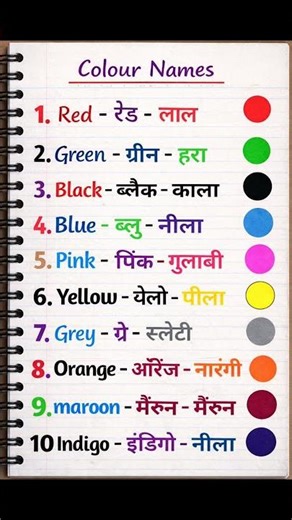 Colour Names
1. Red - रेड - लाल
2. Green - ग्रीन - हरा
3. Black - ब्लैक - काला
4. Blue - ब्लु - नीला
5. Pink - पिंक - गुलाबी
6. Yellow - येलो - पीला
7. Grey - ग्रे - स्लेटी
8. Orange - ऑरेंज - नारंगी
9. maroon - मैंरुन - मैंरुन
10 Indigo - इंडिगो - नीला